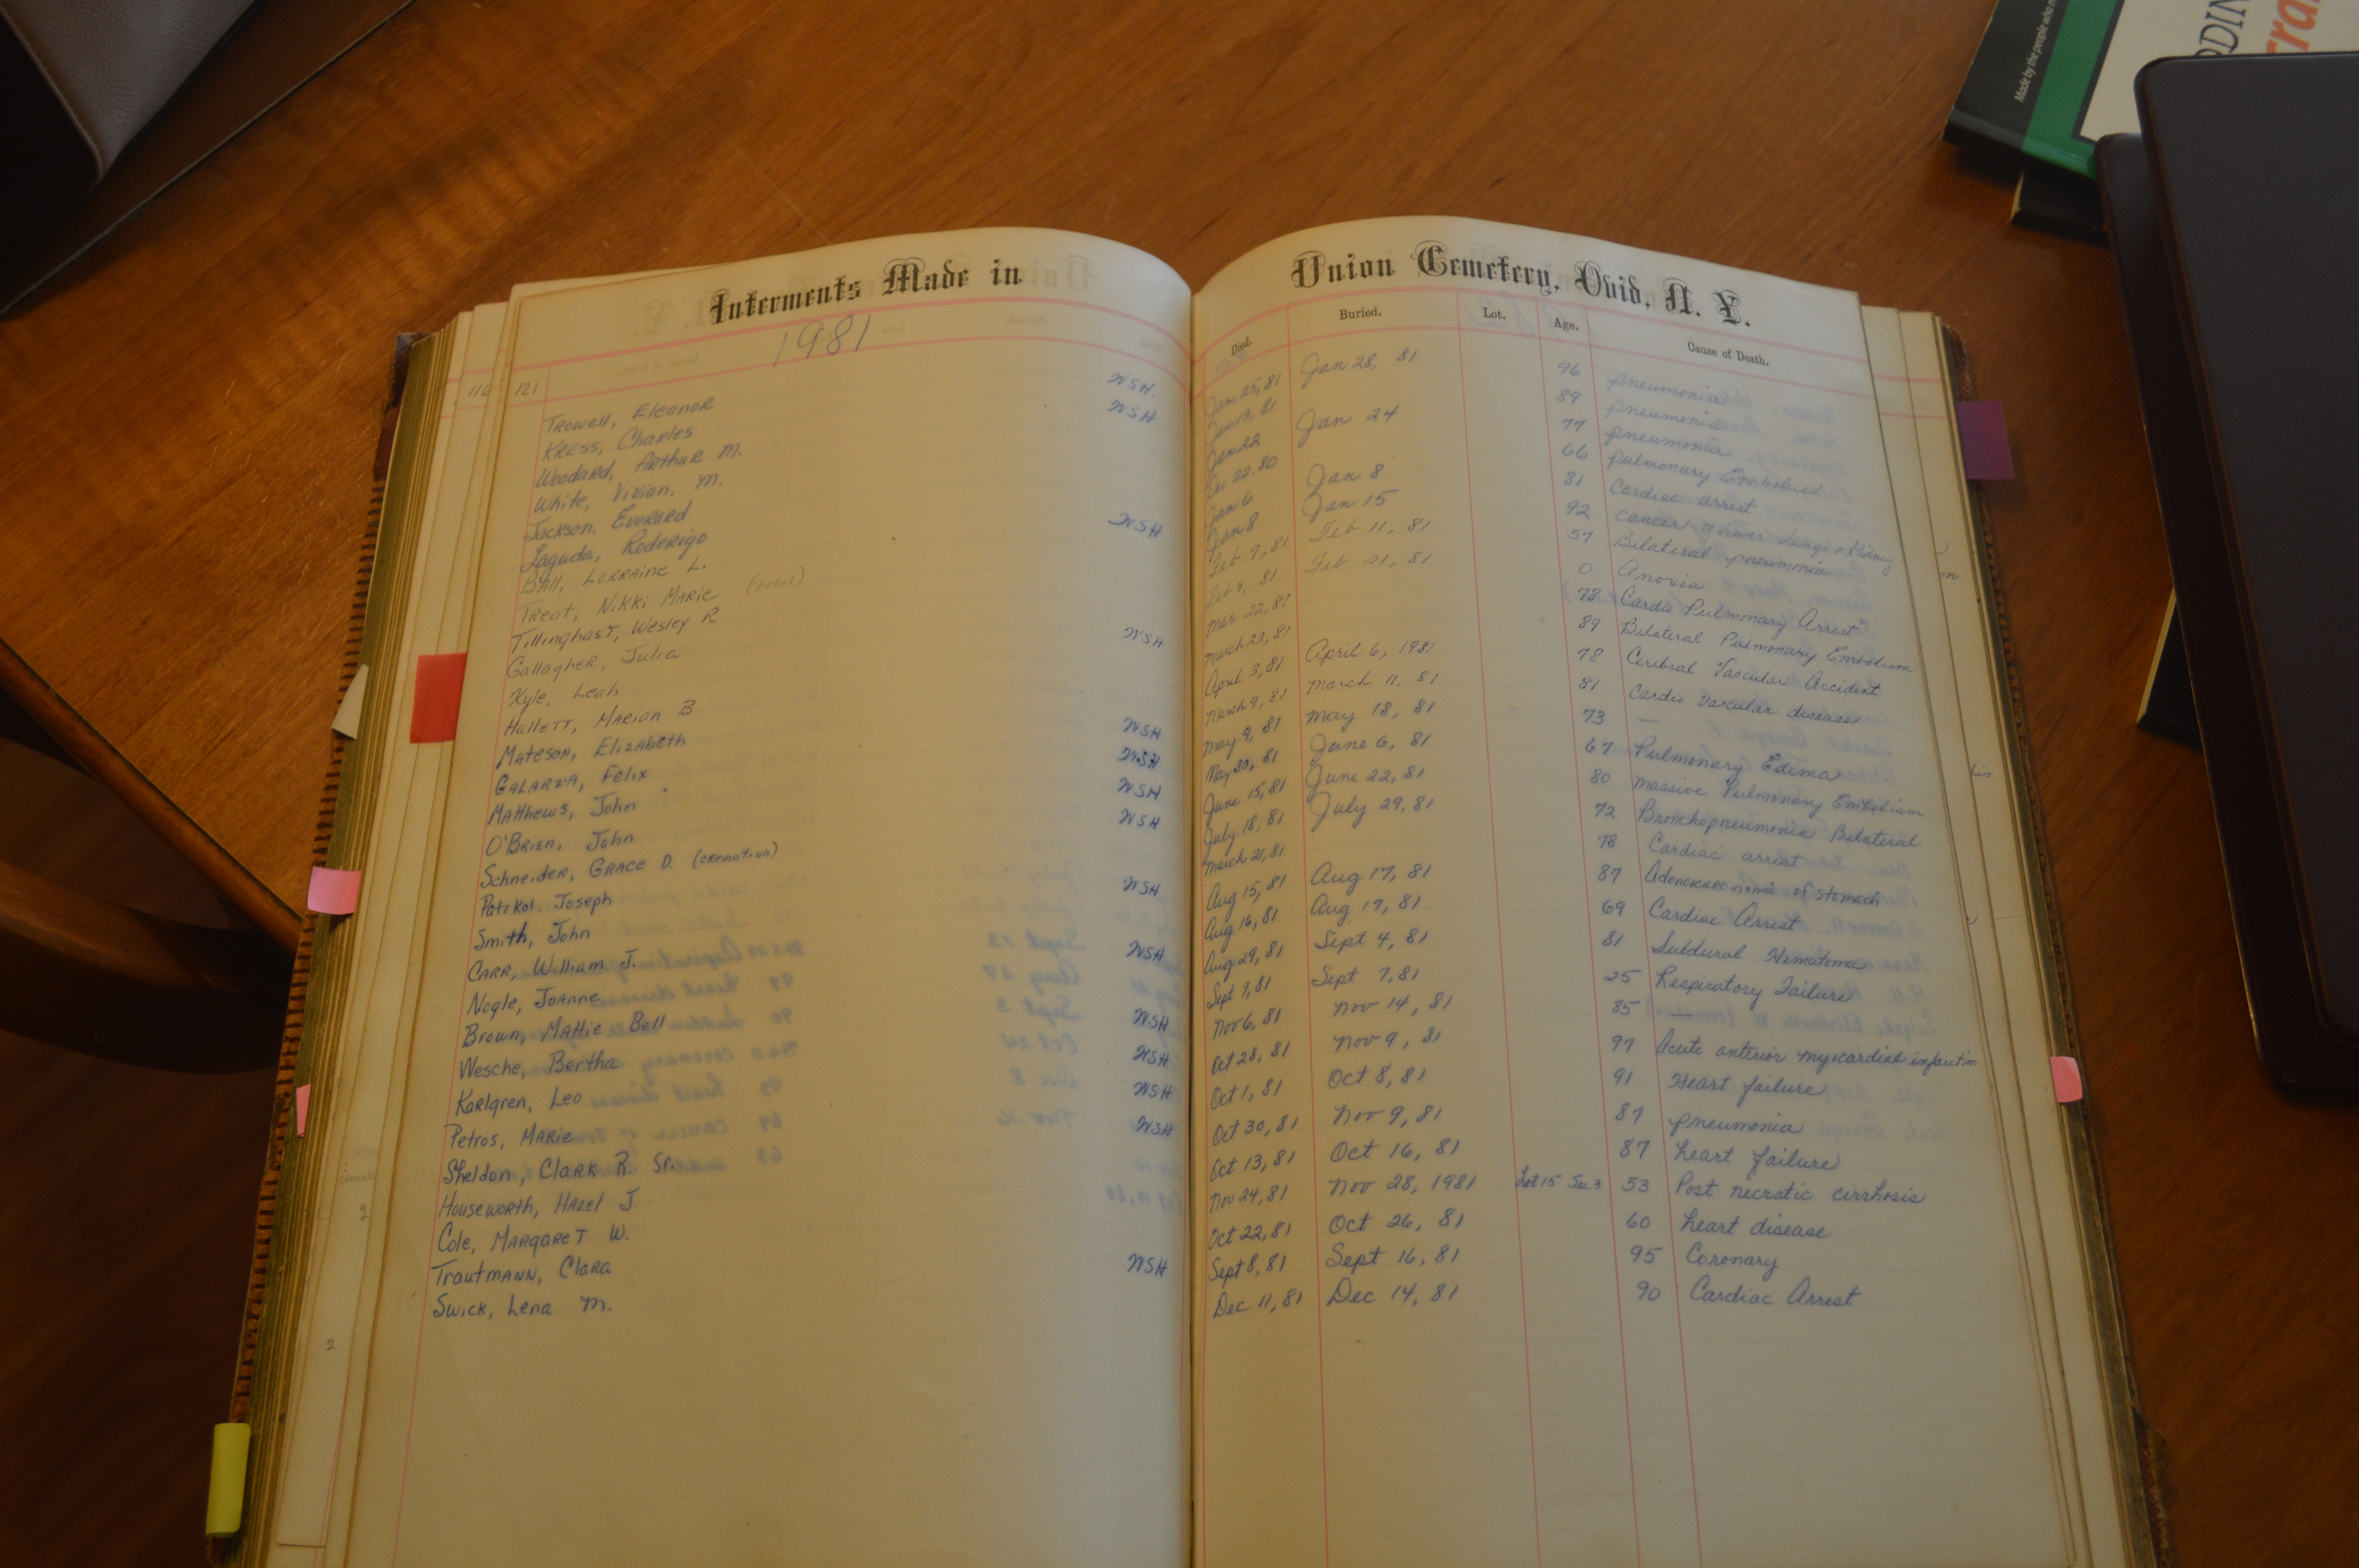 Interments Made in
1981
116
121
Trowell, Eleanor WSH.
Kress, Charles WSH
Woodard, Arthur M.
White, Vivian, M.
Jackson, Everard
Laguda, Roderigo WSH
Ball, Lorraine L.
Treat, Nikki Marie (Fetal)
Tillinghast, Wesley R
Gallagher, Julia WSH
Kyle, Leah
Hallett, Marian B
Mateson, Elizabeth WSH
Galarza, Felix WSH
Matthews, John WSH
O'Brien, John WSH
Schneider, Grace D. (cremation)
Patzkol, Joseph WSH
Smith, John
Carr, William J. WSH
Nogle, Joanne
Brown, Mattie Bell WSH
Wesche, Bertha WSH
Karlgren, Leo WSH
Petros, Marie WSH
Sheldon, Clark R. Sr.
Houseworth, Hazel J.
Cole, Margaret W.
Trautmann, Clara WSH
Swick, Lena M.
Union Cemetery, Ovid, N. Y.
Died. Buried. Lot. Age. Cause of Death.
Jan 25, 81 Jan 28, 81 96 pneumonia
81 89 pneumonia
Jan 22 Jan 24 77 pneumonia
Dec 22, 80 66 pulmonary Embolus
Jan 6 Jan 8 81 Cardiac arrest
Jan 8 Jan 15 92 cancer of liver lungs & kidney
Feb 9, 81 Feb 11, 81 57 Bilateral pneumonia
Feb 9, 81 Feb 21, 81 0 Anoxia
Mar 22, 81 78 Cardio Pulmonary Arrest
March 23, 81 89 Bilateral Pulmonary Embolism
April 3, 81 April 6, 1981 78 Cerebral Vascular Accident
March 9, 81 March 11, 81 81 Cardio Vascular disease
May 9, 81 May 18, 81 73 —
May 30, 81 June 6, 81 67 Pulmonary Edema
June 15, 81 June 22, 81 80 massive Pulmonary Embolism
July 18, 81 July 29, 81 72 Bronchopneumonia Bilateral
March 21, 81 78 Cardiac arrest
Aug 15, 81 Aug 17, 81 87 Adenocarcinoma of stomach
Aug 16, 81 Aug 17, 81 69 Cardiac Arrest
Aug 29, 81 Sept 4, 81 81 Subdural Hematoma
Sept 7, 81 Sept 7, 81 25 Respiratory Failure
Nov 6, 81 Nov 14, 81 85 —
Oct 28, 81 Nov 9, 81 97 Acute anterior myocardial infarction
Oct 1, 81 Oct 8, 81 91 Heart failure
Oct 30, 81 Nov 9, 81 87 pneumonia
Oct 13, 81 Oct 16, 81 87 heart failure
Nov 24, 81 Nov 28, 1981 Lot 15 Sec 3 53 Post necratic cirrhosis
Oct 22, 81 Oct 26, 81 60 heart disease
Sept 8, 81 Sept 16, 81 95 Coronary
Dec 11, 81 Dec 14, 81 90 Cardiac Arrest
Made by the people who